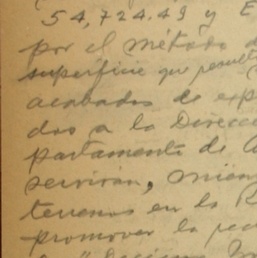 54,724.49 y E
por el método d
superficie que result
acabados de exp
dos a la Direcc
partamento de A
servirán, mien
terrenos en la R
promover la rec